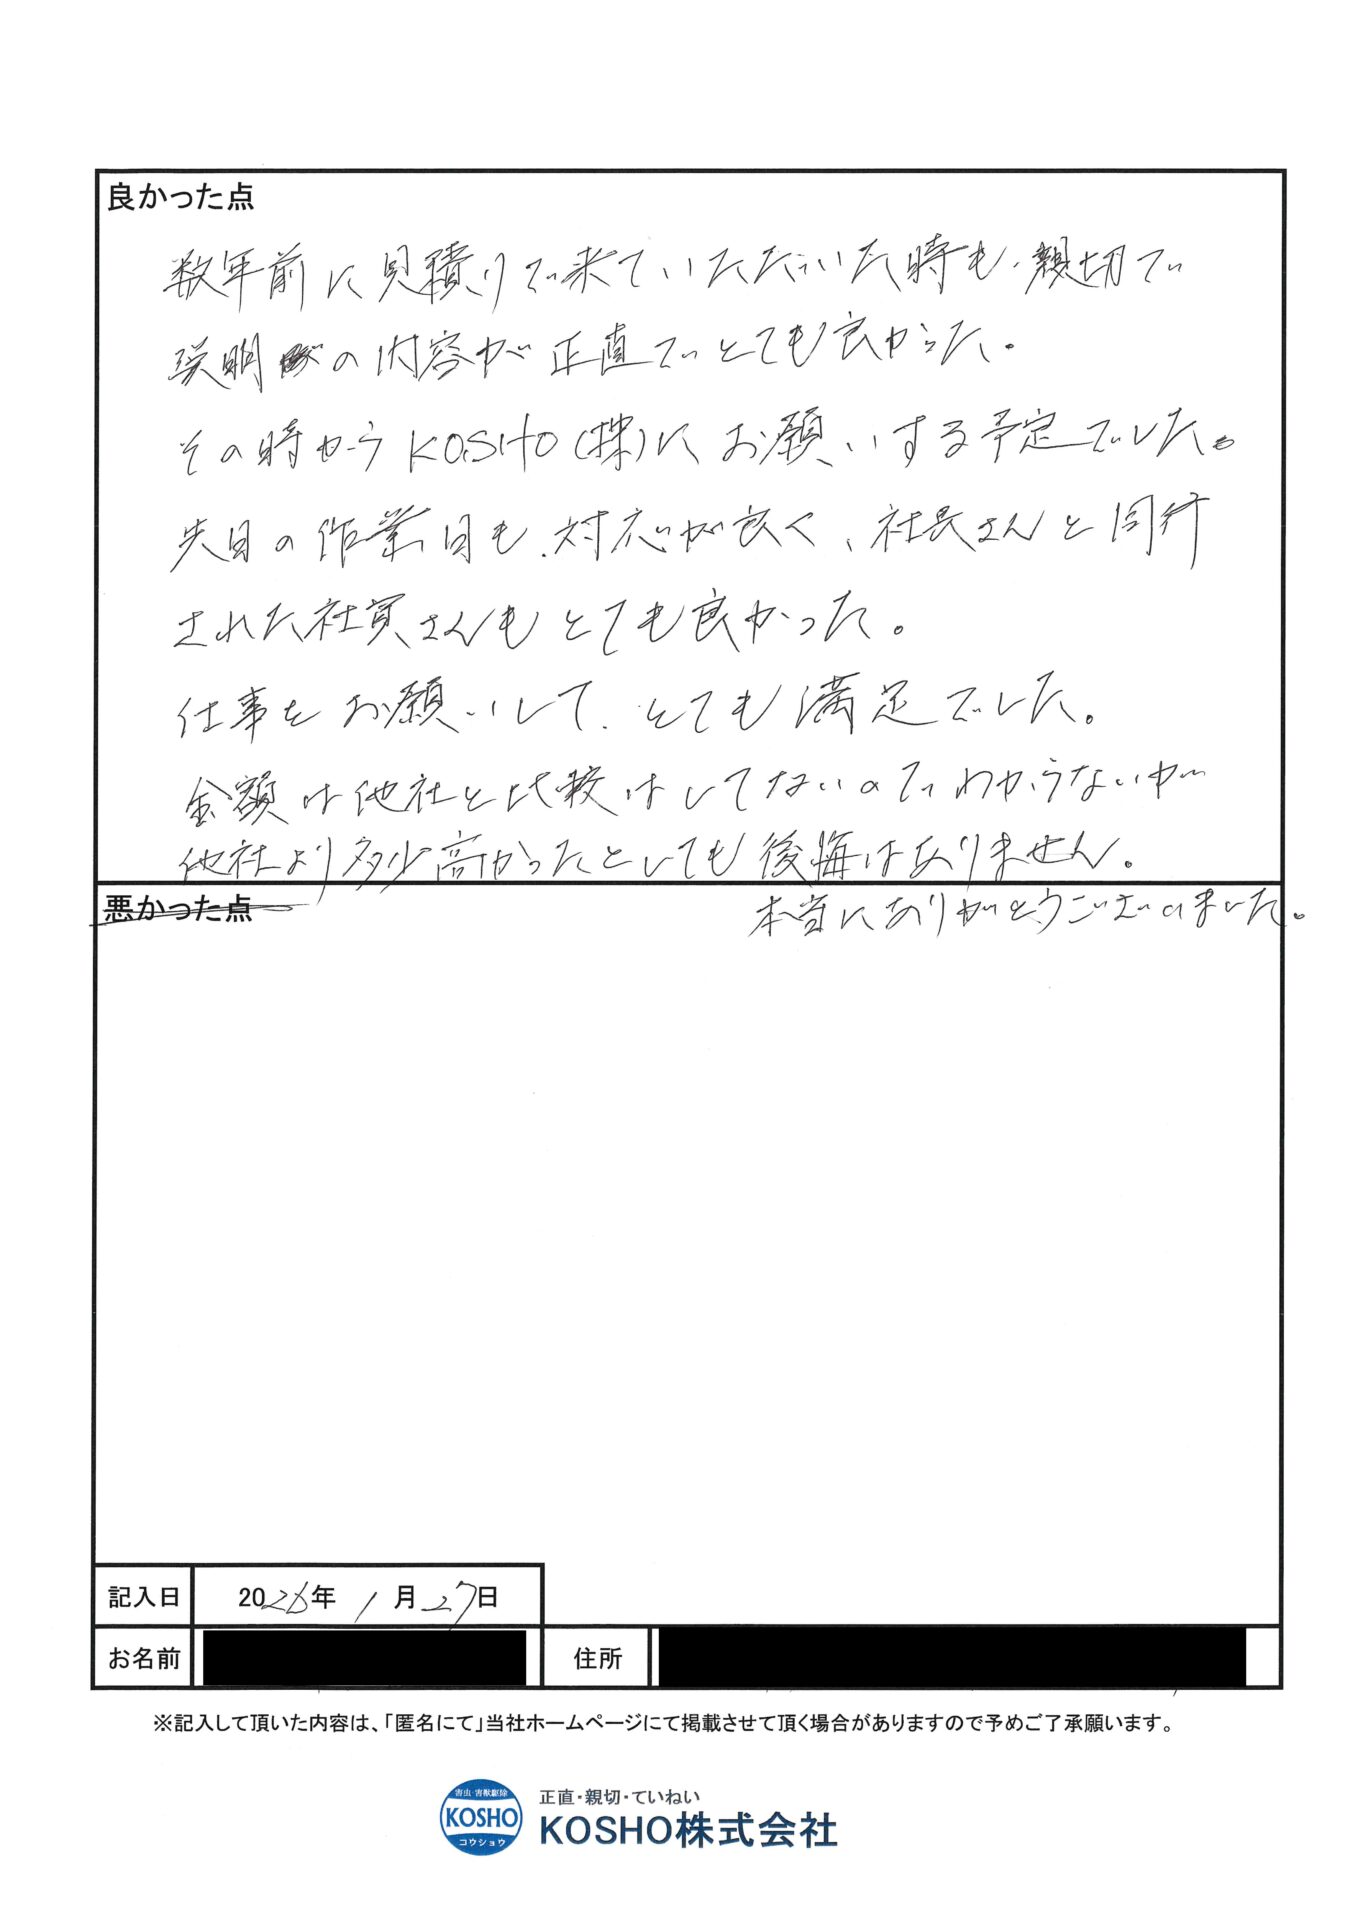 良かった点
数年前に見積りで来ていただいた時も、親切で
説明の内容が正直でとても良かった。
その時からKOSHO(株)にお願いする予定でした。
先日の作業日も、対応が良く、社長さんと同行
された社員さんもとても良かった。
仕事をお願いして、とても満足でした。
金額は他社と比較はしてないのでわからないが
他社より多少高かったとしても後悔はありません。
悪かった点
本当にありがとうございました。
記入日 2026年 1月27日
お名前 住所
※記入して頂いた内容は、「匿名にて」当社ホームページにて掲載させて頂く場合がありますので予めご了承願います。
害虫・害獣駆除
KOSHO
コウショウ
正直・親切・ていねい
KOSHO株式会社